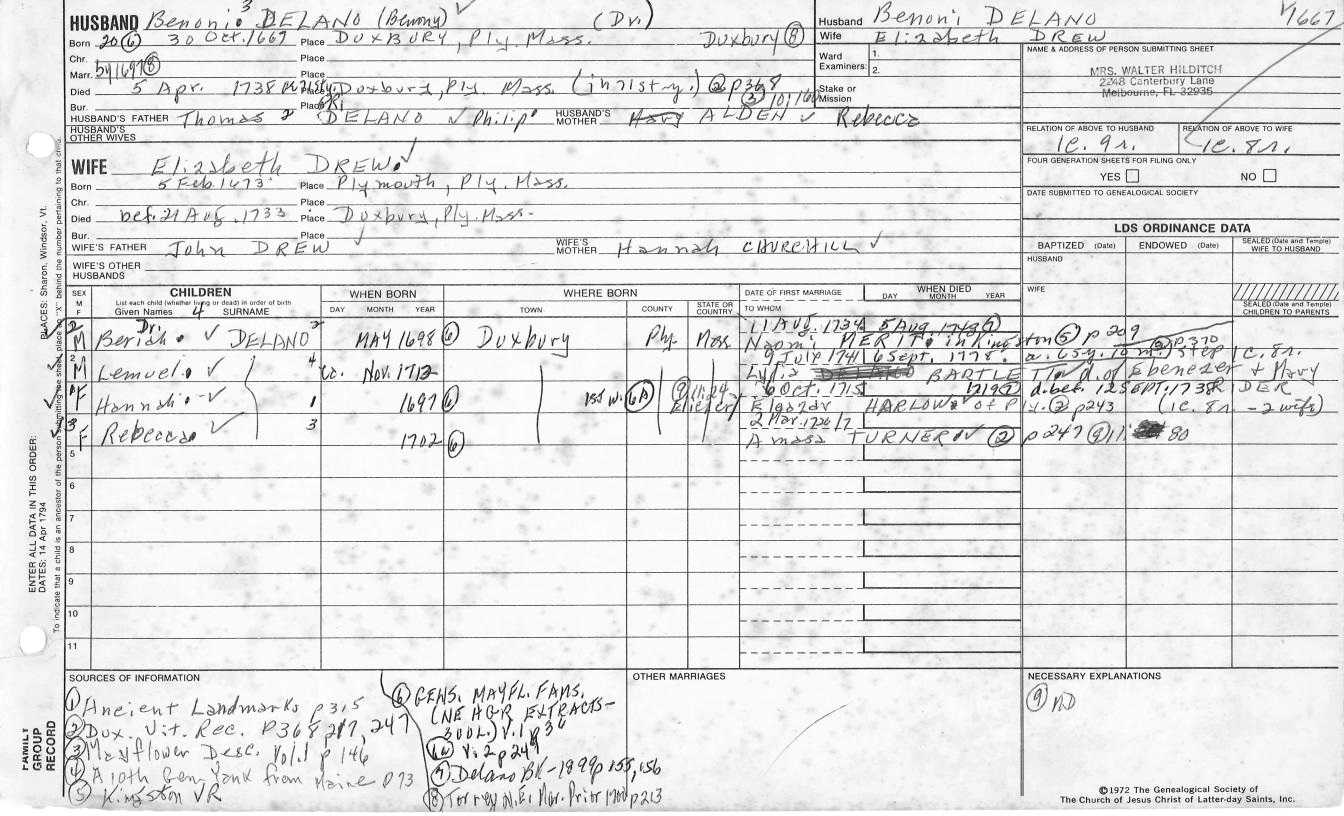 HUSBAND Benoni 3 DELANO (Benony) ✓ (Dr.)
Born 20 (6) 30 Oct. 1667 Place DUXBURY, Ply. Mass. Duxbury (8)
Chr. Place
Marr. by 1697 (8) Place
Died 5 Apr. 1738 Place Duxbury, Ply. Mass. (in 71st y.) (2) p368
Bur. Place (3) 10:
HUSBAND'S FATHER Thomas 2 DELANO ✓ Philip 1 HUSBAND'S MOTHER Mary ALDEN ✓ Rebecca
HUSBAND'S OTHER WIVES
WIFE Elizabeth DREW ✓
Born 5 Feb. 1673 Place Plymouth, Ply. Mass.
Chr. Place
Died bef. 21 Aug. 1733 Place Duxbury, Ply. Mass.
Bur. Place
WIFE'S FATHER John DREW ✓ WIFE'S MOTHER Hannah CHURCHILL ✓
WIFE'S OTHER HUSBANDS
Husband Benoni DELANO 1667
Wife Elizabeth DREW
Ward Examiners: 1. 2.
Stake or Mission
NAME & ADDRESS OF PERSON SUBMITTING SHEET
MRS. WALTER HILDITCH
2248 Canterbury Lane
Melbourne, FL 32935
RELATION OF ABOVE TO HUSBAND RELATION OF ABOVE TO WIFE
1c. 9r. 1c. 8r.
FOUR GENERATION SHEETS FOR FILING ONLY
YES NO
DATE SUBMITTED TO GENEALOGICAL SOCIETY
LDS ORDINANCE DATA
BAPTIZED (Date) ENDOWED (Date) SEALED (Date and Temple) WIFE TO HUSBAND
HUSBAND
WIFE
SEALED (Date and Temple) CHILDREN TO PARENTS
SEX M F
CHILDREN
List each child (whether living or dead) in order of birth
Given Names 4 SURNAME
WHEN BORN
DAY MONTH YEAR
WHERE BORN
TOWN COUNTY STATE OR COUNTRY
DATE OF FIRST MARRIAGE
TO WHOM
WHEN DIED
DAY MONTH YEAR
11 Aug. 1734 5 Aug. 1749 (7)
M Dr. Beriah ✓ DELANO 2 MAY 1698 (6) Duxbury Ply. Mass Naomi MERIT in Kingston (5) p 209
9 July 1741 6 Sept. 1778 a. 65y. 10 m. p370 step 1c. 8r.
M Lemuel ✓ 4 ca. Nov. 1712 Lydia BARTLETT d. of Ebenezer & Mary RIDER
6 Oct. 1715 1719 (7) d. bef. 12 SEPT. 1738
F Hannah ✓ 1 1697 (6) 1st w. (6A) (9) 11:24 Eliezer Eleazar HARLOW of Ply. (2) p243 (1c. 8r. - 2 wife)
2 Mar. 1726/7
F Rebecca ✓ 3 1702 (6) Amasa TURNER ✓ (2) p247 (9) 11: 80
5
6
7
8
9
10
11
SOURCES OF INFORMATION
(1) Ancient Landmarks p 315
(2) Dux. Vit. Rec. P368, 217, 247
(3) Mayflower Desc. Vol. 1 p 146
(4) A 10th Gen. Yank from Maine p73
(5) Kingston VR
(6) GENS. MAYFL. FAMS.
(NEHGR EXTRACTS-
300L.) V. 1 p36
(6a) V. 2 p 249
(7) Delano BK - 1899 p 155, 156
(8) Torrey N.E. Mar. Prior 1700 p213
OTHER MARRIAGES
NECESSARY EXPLANATIONS
(9) MD
©1972 The Genealogical Society of
The Church of Jesus Christ of Latter-day Saints, Inc.
FAMILY GROUP RECORD
ENTER ALL DATA IN THIS ORDER:
DATES: 14 Apr 1794
PLACES: Sharon, Windsor, Vt.
To indicate that a child is an ancestor of the person submitting the sheet, place an "X" behind the number pertaining to that child.